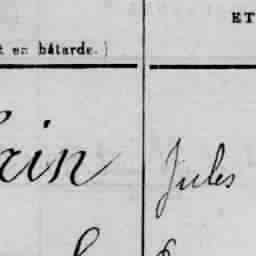 ET
t en bâtarde.)
rin Jules